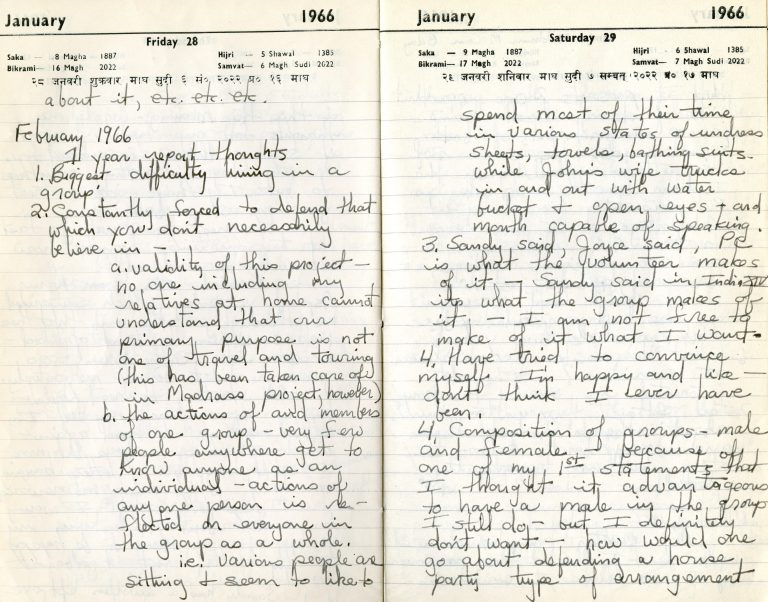 January 1966
Friday 28
Saka — 8 Magha 1887 Hijri — 5 Shawal — 1385
Bikrami — 16 Magh 2022 Samvat — 6 Magh Sudi 2022
२८ जनवरी शुक्रवार माघ सुदी ६ सं० २०२२ प्र० १६ माघ
about it, etc. etc. etc.
February 1966
1 year report thoughts
1. Biggest difficulty living in a
group.
2. Constantly forced to defend that
which you don't necessarily
believe in —
a. validity of this project —
no one including my
relatives at home cannot
understand that our
primary purpose is not
one of travel and touring
(this has been taken care of
in Madrass project, however)
b. the actions of and members
of one group - very few
people anywhere get to
know anyone as an
individual - actions of
any one person is re-
flected on everyone in
the group as a whole.
i.e. various people are
sitting & seem to like to
January 1966
Saturday 29
Saka — 9 Magha 1887 Hijri — 6 Shawal 1385
Bikrami — 17 Magh 2022 Samvat — 7 Magh Sudi 2022
२९ जनवरी शनिवार माघ सुदी ७ सम्वत् २०२२ प्र० १७ माघ
spend most of their time
in various states of undress
sheets, towels, bathing suits.
while John's wife trucks
in and out with water
bucket & open eyes - and
mouth capable of speaking.
3. Sandy said, Joyce said, PC
is what the volunteer makes
of it - Sandy said in India XIV
its what the group makes of
it - I am not free to
make of it what I want.
4. Have tried to convince
myself I'm happy and like —
don't think I ever have
been.
4. Composition of groups - male
and female - because of
one of my 1st statements that
I thought it advantageous
to have a male in the group
I still do - but I definitely
don't want - how would one
go about defending a house
party type of arrangement